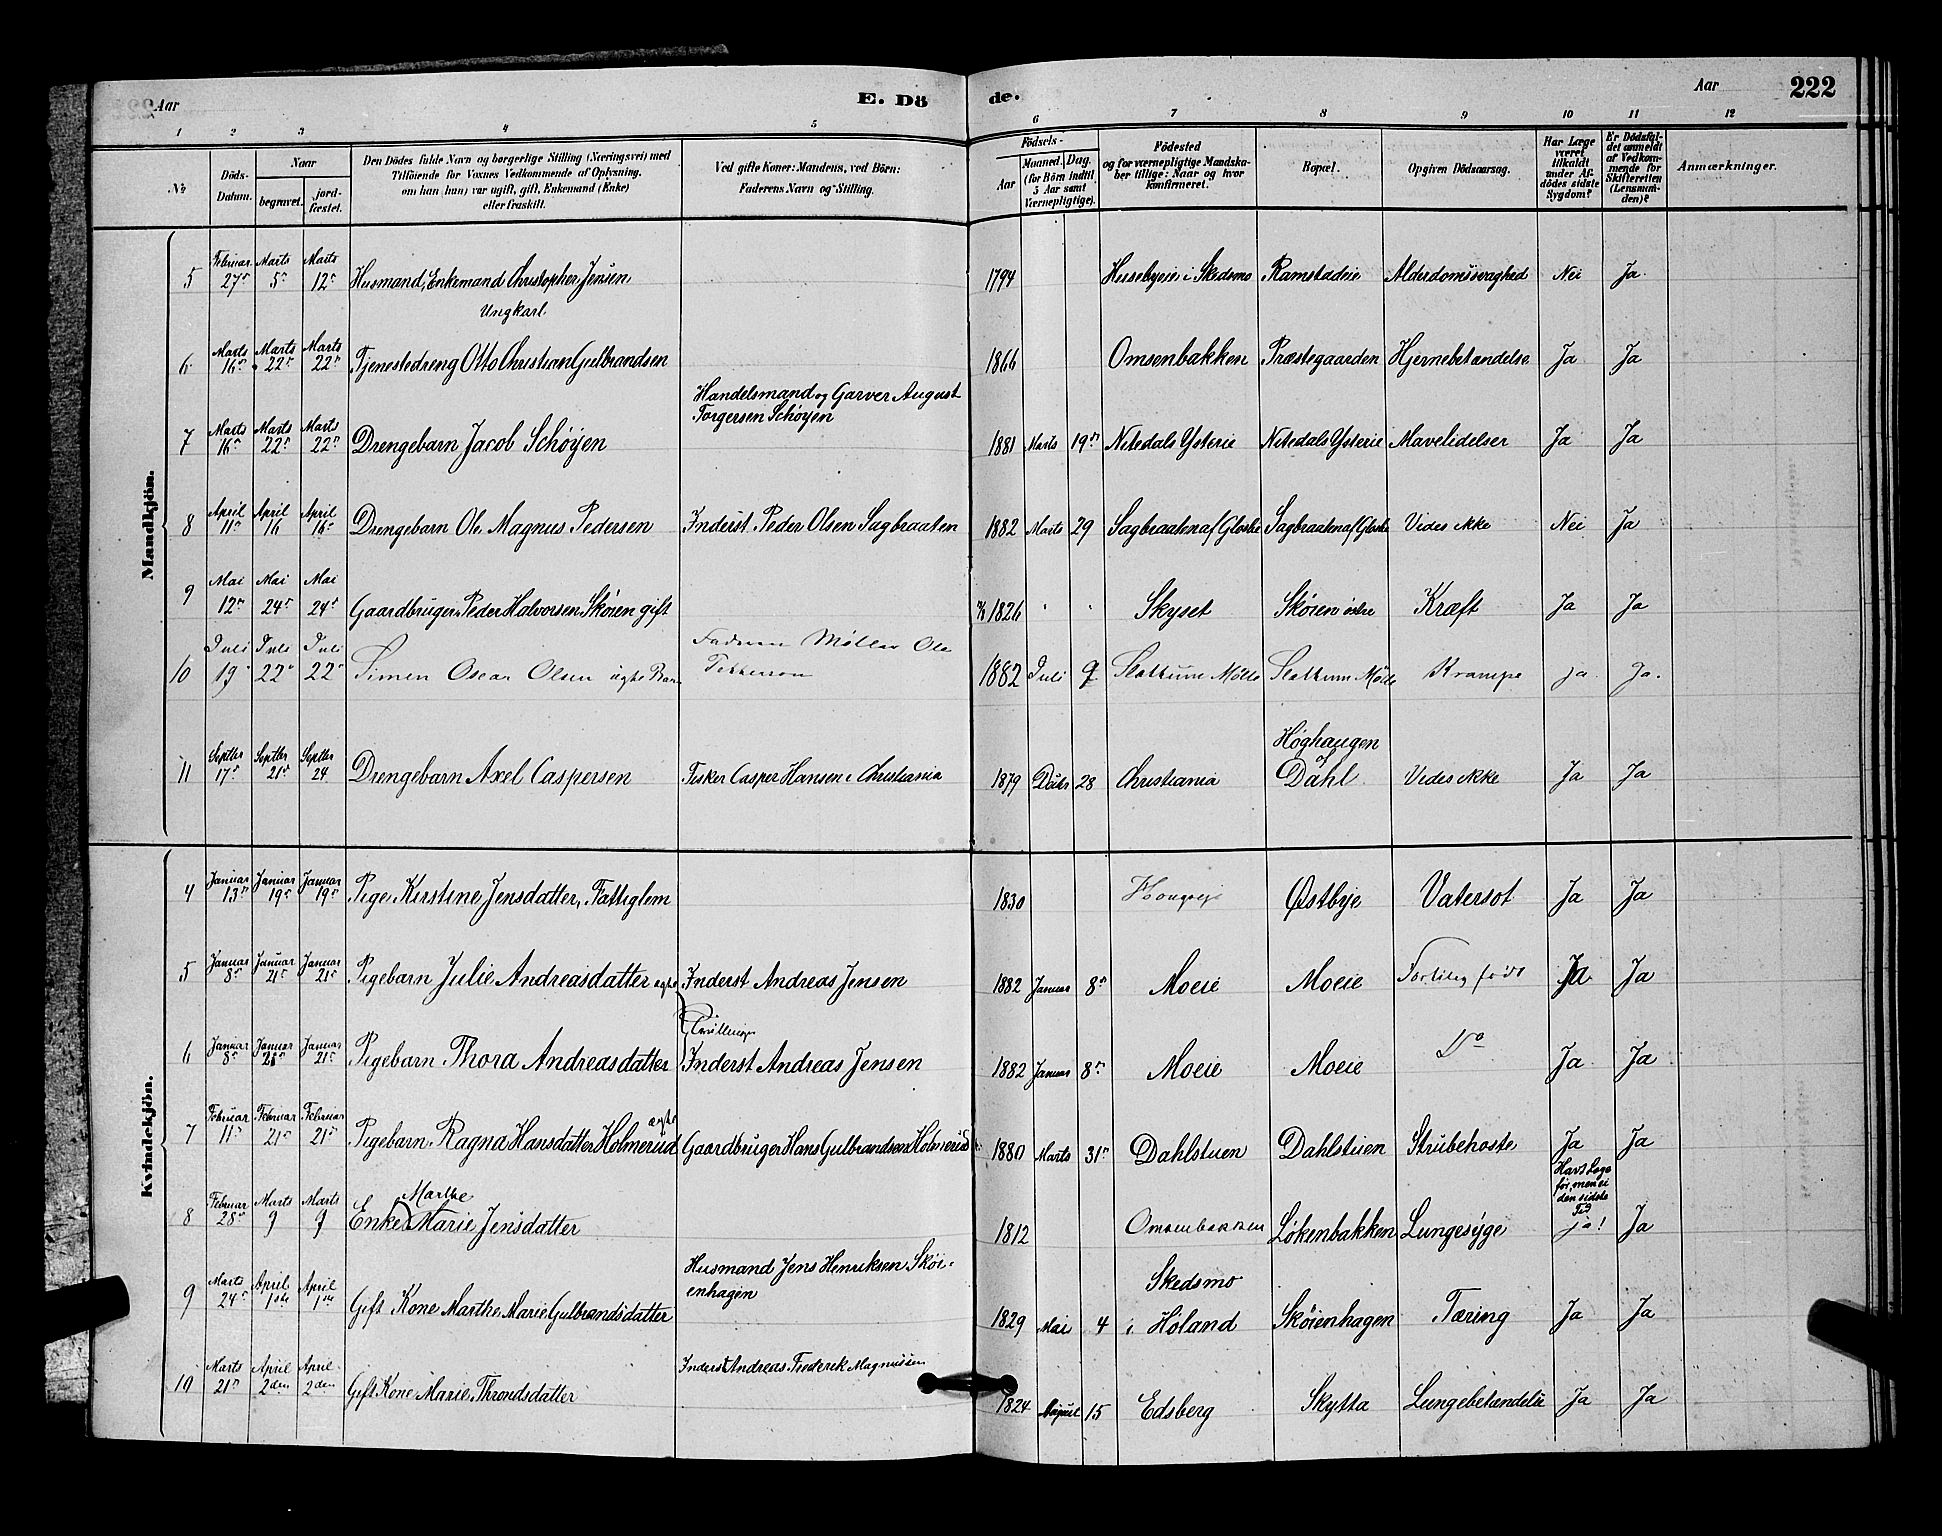 Aar E. Dö de. Aar 222
1 2 3 4 5 6 7 8 9 10 11 12
No
Döds-Datum.
Naar
begravet.
jord-fæstet.
Den Dödes fulde Navn og borgerlige Stilling (Næringsvei) med
Tilföiende for Voxnes Vedkommende af Oplysning,
om han (hun) var ugift, gift, Enkemand (Enke)
eller fraskilt.
Ved gifte Koner: Mandens, ved Börn:
Faderens Navn og Stilling.
Födsels-
Aar
Maaned. Dag.
(for Börn indtil
5 Aar samt
Værnepligtige).
Födested
og for værnepligtige Mandska-
ber tillige: Naar og hvor
konfirmeret.
Bopæl.
Opgiven Dödsaarsag.
Har Læge
været
tilkaldt
under Af-
dödes sidste
Sygdom?
Er Dödsfal-
det anmeldt
af Vedkom-
mende for
Skifteretten
(Lensman-
den)?
Anmærkninger.
Mandkjön.
5 Februar 27de Marts 5te Marts 12te Husmand, Enkemand Christopher Jensen 1794 Husebyeie i Skedsmo Ramstadeie Alderdomssvaghed Nei Ja
Ungkarl
6 Marts 16de Marts 22de Marts 22de Tjenestedreng Otto Christian Gulbrandsen 1866 Omsenbakken Præstegaarden Hjernebetændelse Ja Ja
Handelsmand og Garver August
Torgersen Schøyen
7 Marts 16de Marts 22de Marts 22de Drengebarn Jacob Schøyen 1881 Marts 19de Nitedals Ysterie Nitedals Ysterie Mavelidelser Ja Ja
8 April 11te April 16 April 16de Drengebarn Ole Magnus Pedersen Inderst Peder Olsen Sagbraaten 1882 Marts 29 Sagbraaten af Vides ikke Nei Ja
9 Mai 12te Mai 24de Mai 24de Gaardbruger Peder Halvorsen Skøien gift 1826 Skyset Skøien østre Kræft Ja Ja
10 Juli 19 Juli 22 Juli 22 Simen Oscar Olsen ægte Barn Faderen Møller Ole
1882 Juli 9 Slattum Mølle Slattum Mølle Krampe ja Ja.
Høghaugen
af
11 Septbr 17de Septbr 21de Septbr 24 Drengebarn Axel Caspersen Fisker Casper Hansen i Christiania 1879 28 Christiania Dahl Vides ikke Ja Ja
Kvindekjön.
4 Januar 13de Januar 19de Januar 19de Pige Kirstine Jensdatter, Fattiglem 1830 Østbye Vatersot Ja Ja
5 Januar 8de Januar 21de Januar 21de Pigebarn Julie Andreasdatter ægte Inderst Andreas Jensen 1882 Januar 8de Moeie Moeie For tidlig født Ja Ja
Tvillinger
6 Januar 8de Januar 21de Januar 21de Pigebarn Thora Andreasdatter Inderst Andreas Jensen 1882 Januar 8de Moeie Moeie Do Ja Ja
ægte
7 Februar 11te Februar 21de Februar 21de Pigebarn Ragna Hansdatter Holmerud Gaardbruger Hans Gulbrandsen Holmerud 1880 Marts 31te Dahlstuen Dahlstuen Strubehoste Ja Ja
Marthe
8 Februar 28de Marts 9 Marts 9 Enke Marie Jensdatter 1812 Omsenbakken Løkenbakken Lungesyge Havt Læge
før, men ei
den sidste
Tid
ja! Ja
Husmand Jens Henriksen Skøi-
enhagen
9 Marts 24de April 1ste April 1ste Gift Kone Marthe Marie Gulbrandsdatter 1829 Mai 4 Skedsmo
i Holand Skøienhagen Tæring Ja Ja
10 Marts 21de April 2den April 2den Gift Kone Marie Throndsdatter Inderst Andreas Frederik Magnussen 1824 15 Edsberg Skytta Lungebetændelse Ja Ja